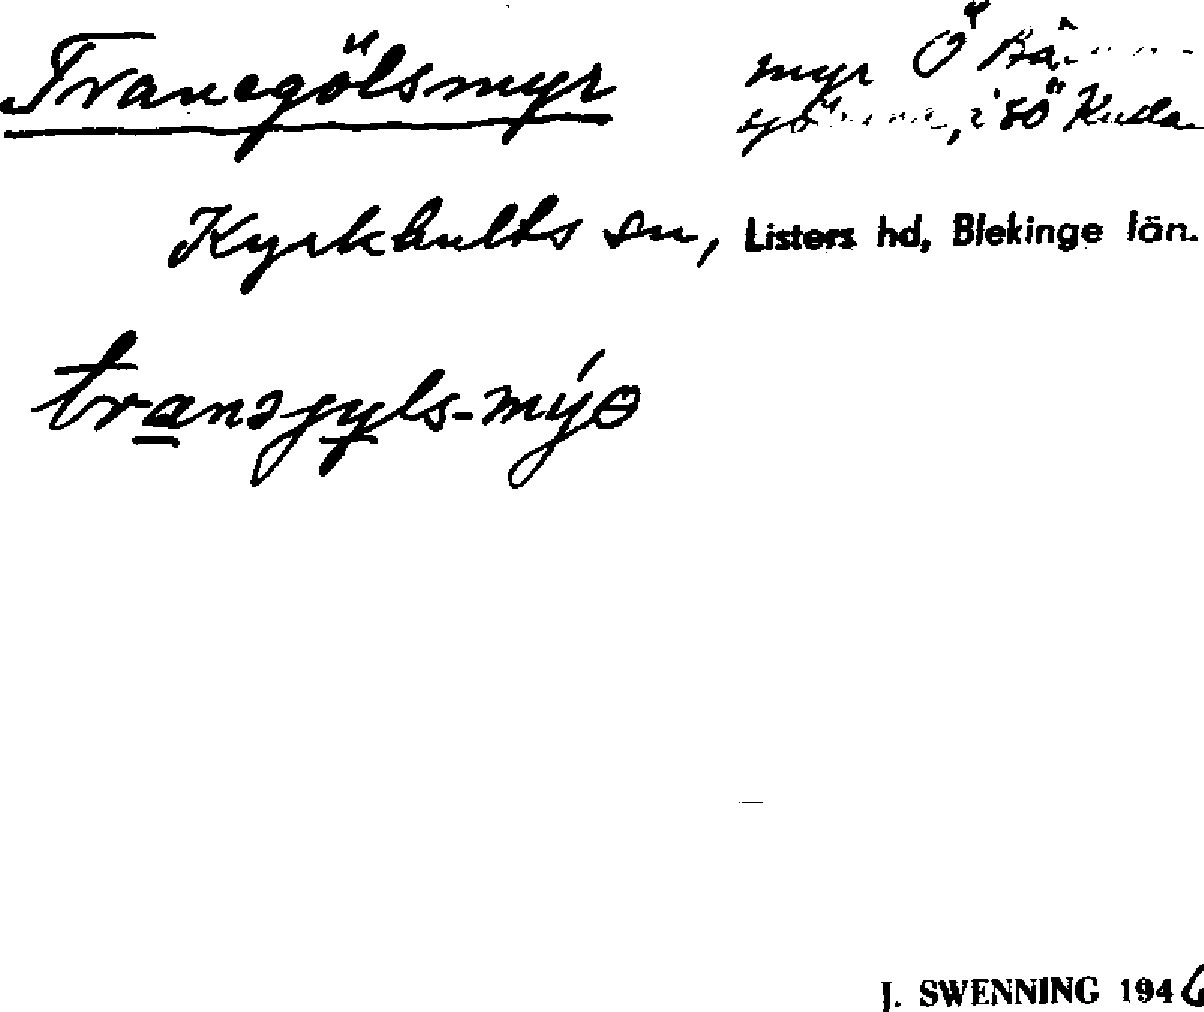 Tranegölsmyr
myr Ö
i sö Kulla
Kyrkhults sn, Listers hd, Blekinge län.
tranəgyls-mýə
J. SWENNING 1946